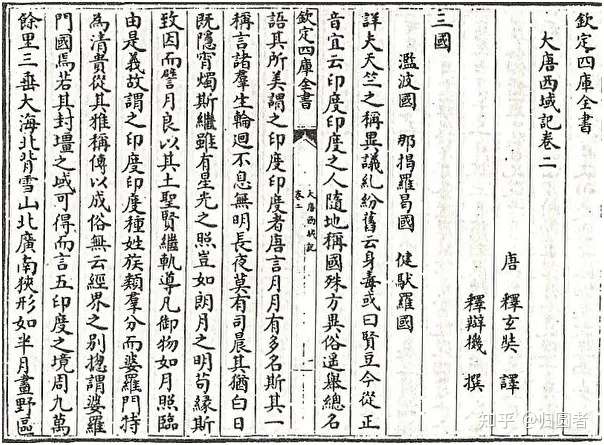 欽定四庫全書
大唐西域記卷二
唐 釋玄奘 譯
釋辯機 撰
三國
濫波國 那揭羅曷國 健馱羅國
詳夫天竺之稱異議糺紛舊云身毒或曰賢豆今從正
音宜云印度印度之人隨地稱國殊方異俗遥舉總名
欽定四庫全書
大唐西域記
卷二
一
語其所美謂之印度印度者唐言月月有多名斯其一
稱言諸羣生輪迴不息無明長夜莫有司晨其猶白日
既隱宵燭斯繼雖有星光之照豈如朗月之明苟緣斯
致因而譬月良以其土聖賢繼軌導凡御物如月照臨
由是義故謂之印度印度種姓族類羣分而婆羅門特
為清貴從其雅稱傳以成俗無云經界之別摠謂婆羅
門國焉若其封壃之域可得而言五印度之境周九萬
餘里三垂大海北背雪山北廣南狹形如半月畫野區
知乎 @归圆者